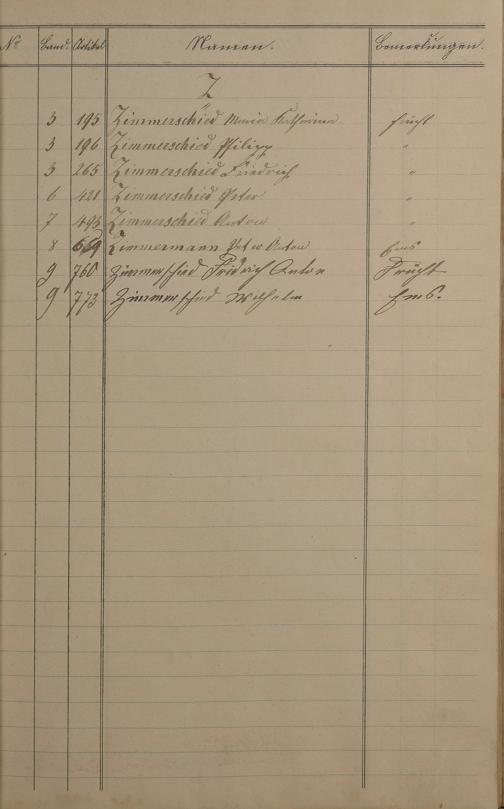 No Band. Artikel Namen. Bemerkungen.
Z
3 195 Zimmerschied Maria Katharina Frücht
3 196 Zimmerschied Philipp "
3 265 Zimmerschied Friedrich "
6 421 Zimmerschied Peter "
7 493 Zimmerschied Anton "
8 669 Zimmermann Peter Anton Ems
9 760 Zimmerschied Fridrich Anton Frücht
9 773 Zimmerschied Wilhelm Ems.